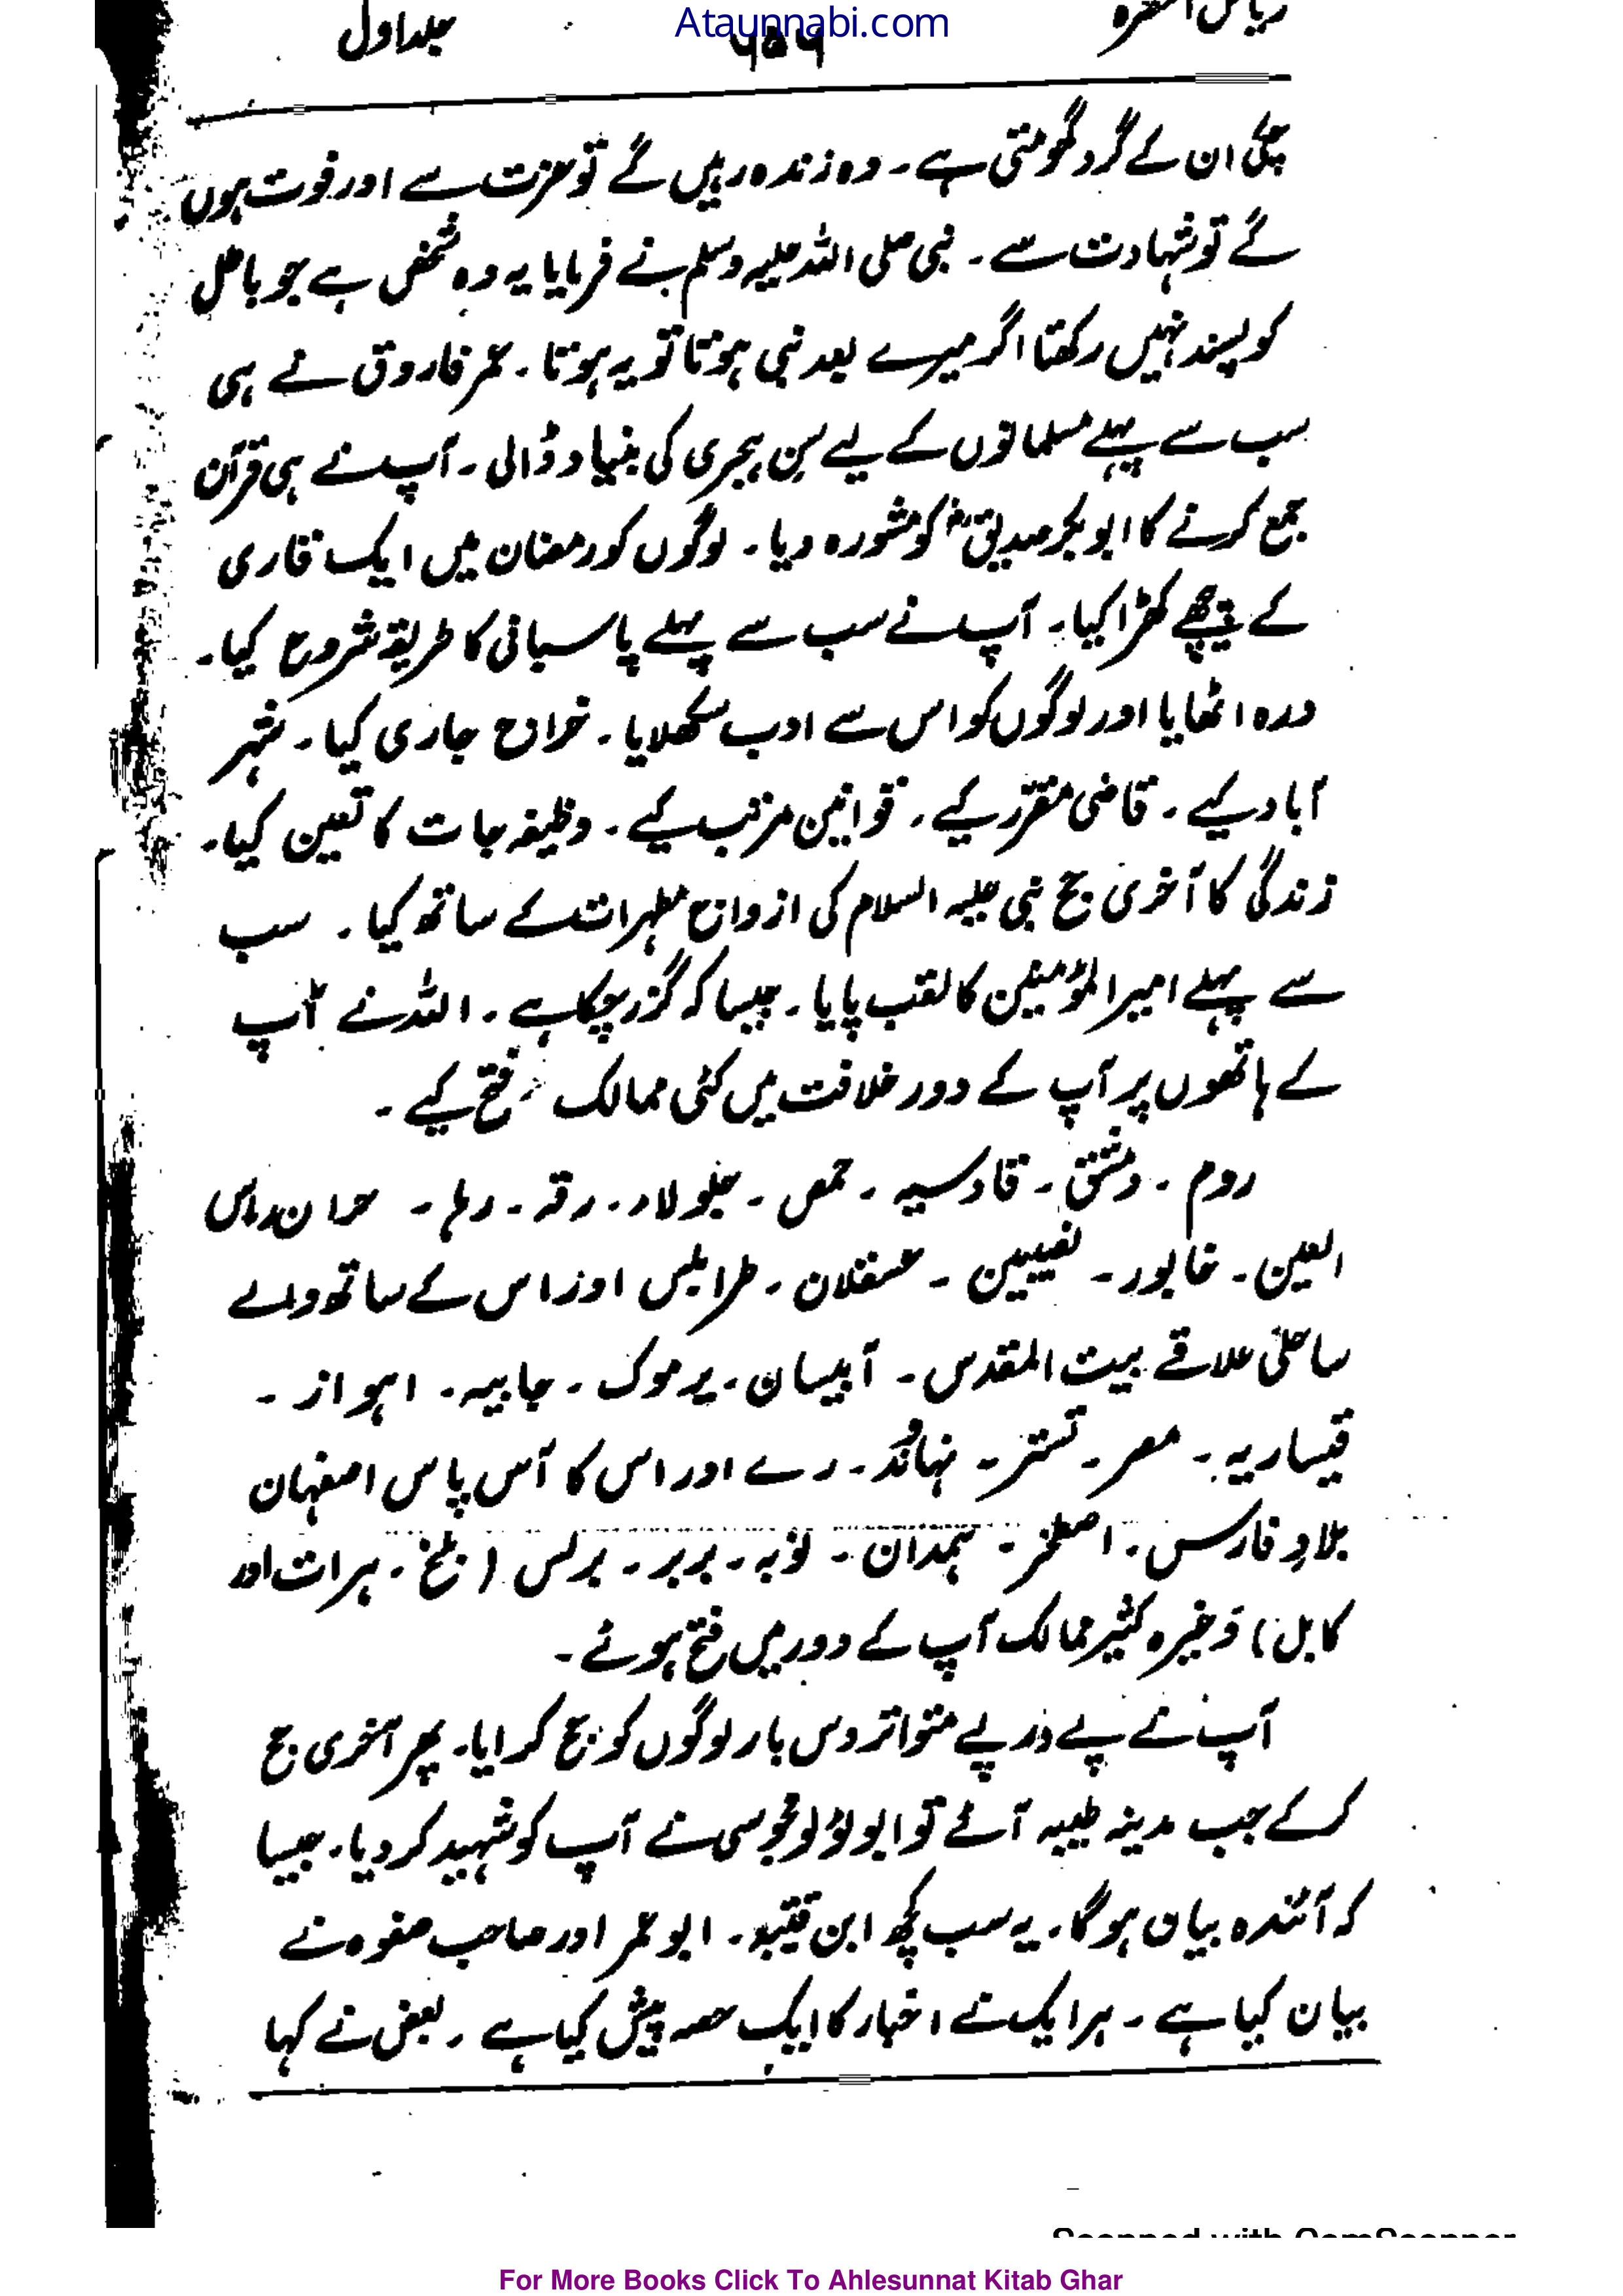 Ataunnabi.com
جلداول
چکی ان کے گرد گھومتی ہے۔ وہ زندہ رہیں گے تو عزت سے اور فوت ہوں
گے تو شہادت سے۔ نبی صلی اللہ علیہ وسلم نے فرمایا یہ وہ شخص ہے جو باطل
کو پسند نہیں رکھتا اگر میرے بعد نبی ہوتا تو یہ ہوتا۔ عمر فاروق نے ہی
سب سے پہلے مسلمانوں کے لیے سن ہجری کی بنیاد ڈالی۔ آپ نے ہی قرآن
جمع کرنے کا ابو بکر صدیقؓ کو مشورہ دیا۔ لوگوں کو رمضان میں ایک قاری
کے پیچھے کھڑا کیا۔ آپ نے سب سے پہلے پاسبانی کا طریقہ شروع کیا۔
درہ اٹھایا اور لوگوں کو اس سے ادب سکھلایا۔ خراج جاری کیا۔ شہر
آباد کیے۔ قاضی مقرر کیے۔ قوانین مرتب کیے۔ وظیفہ جات کا تعین کیا۔
زندگی کا آخری حج نبی علیہ السلام کی ازواج مطہرات کے ساتھ کیا۔ سب
سے پہلے امیر المؤمنین کا لقب پایا۔ جیسا کہ گزر چکا ہے۔ اللہ نے آپ
کے ہاتھوں پر آپ کے دور خلافت میں کئی ممالک فتح کیے۔
روم۔ دمشق۔ قادسیہ۔ حمص۔ جلولاء۔ رقہ۔ رہا۔ حران۔ راس
العین۔ خابور۔ نصیبین۔ عسقلان۔ طرابلس اور اس کے ساتھ والے
ساحلی علاقے بیت المقدس۔ آبیسان۔ یرموک۔ جابیہ۔ اہواز۔
قیساریہ۔ مصر۔ تستر۔ نہاوند۔ رے اور اس کا آس پاس اصفہان
بلادِ فارس۔ اصطخر۔ ہمدان۔ نوبہ۔ بربر۔ برلس (بلخ۔ ہرات اور
کابل) وغیرہ کثیر ممالک آپ کے دور میں فتح ہوئے۔
آپ نے پے درپے متواتر دس بار لوگوں کو حج کرایا۔ پھر آخری حج
کر کے جب مدینہ طیبہ آئے تو ابو لؤلؤ مجوسی نے آپ کو شہید کر دیا۔ جیسا
کہ آئندہ بیان ہوگا۔ یہ سب کچھ ابن قتیبہ۔ ابو عمر اور صاحب صفوہ نے
بیان کیا ہے۔ ہر ایک نے اخبار کا ایک حصہ پیش کیا ہے۔ بعض نے کہا
Scanned with CamScanner
For More Books Click To Ahlesunnat Kitab Ghar